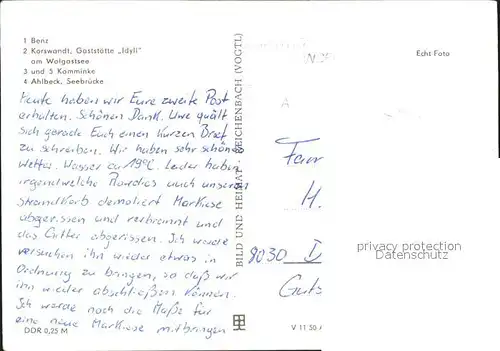 1 Benz
2 Korswandt, Gaststätte „Idyll"
am Wolgastsee
3 und 5 Kamminke
4 Ahlbeck, Seebrücke
Heute haben wir Eure zweite Post
erhalten. Schönen Dank. Uwe quält
sich gerade Euch einen kurzen Brief
zu schreiben. Wir haben sehr schönes
Wetter. Wasser ca 19°C. Leider haben
irgendwelche Rowdies auch unseren
Strandkorb demoliert Markise
abgerissen und verbrannt und
das Gitter abgerissen. Ich werde
versuchen ihn wieder etwas in
Ordnung zu bringen, so daß wir
ihn wieder abschließen können.
Ich werde noch die Maße für
eine neue Markise mitbringen
DDR 0,25 M
BILD UND HEIMAT REICHENBACH (VOGTL)
V 11 50
Echt Foto
Fam
H.
8030 D
Guts
privacy protection
Datenschutz